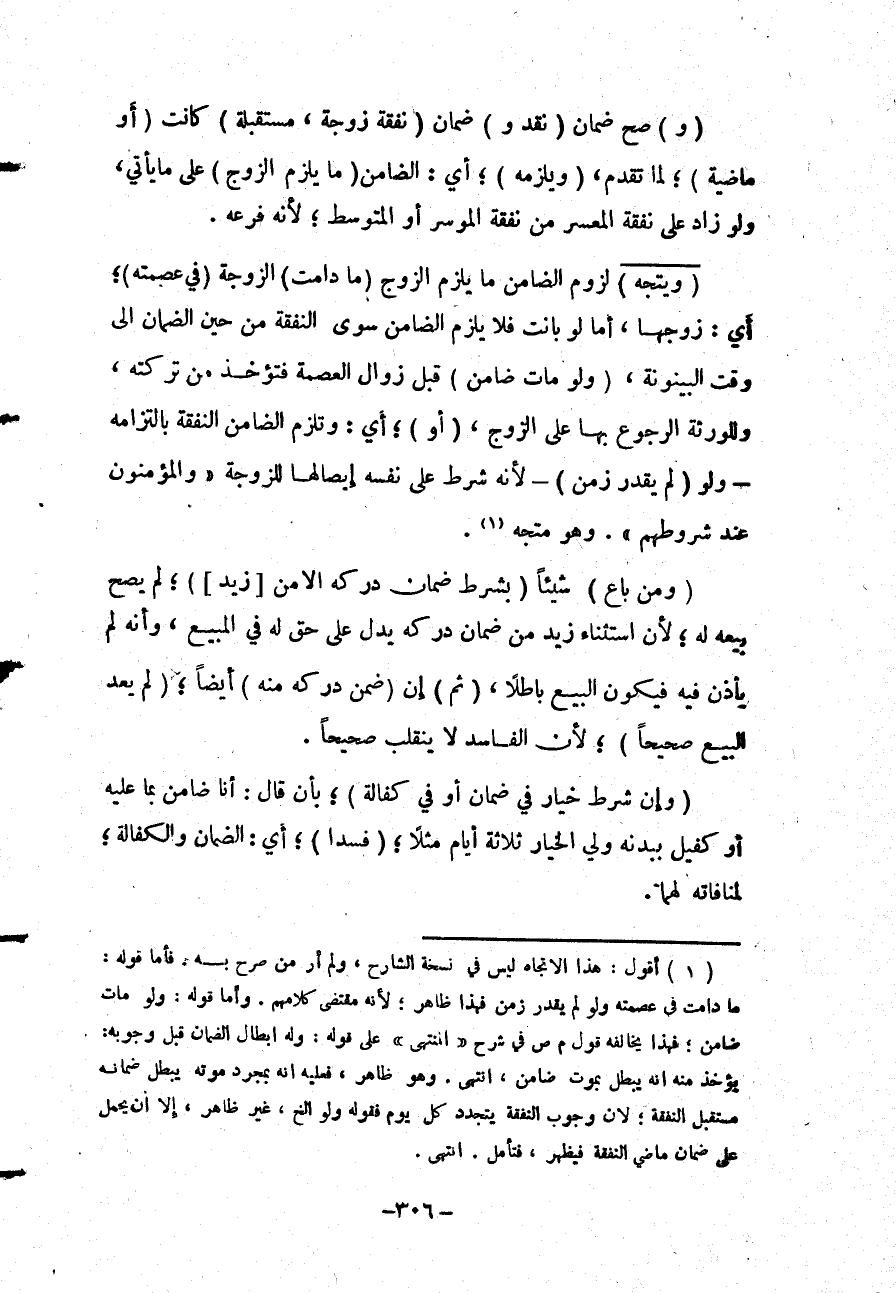 ( و ) صح ضمان ( نقد و ) ضمان ( نفقة زوجة ، مستقبلة ) كانت ( أو
ماضية ) ؛ لما تقدم، ( ويلزمه ) ؛ أي : الضامن( ما يلزم الزوج ) على مايأتي،
ولو زاد على نفقة المعسر من نفقة الموسر أو المتوسط ؛ لأنه فرعه .
( ويتجه ) لزوم الضامن ما يلزم الزوج (ما دامت) الزوجة (في عصمته)؛
أي : زوجهـا ، أما لو بانت فلا يلزم الضامن سوى النفقة من حين الضمان الى
وقت البينونة ، ( ولو مات ضامن ) قبل زوال العصمة فتؤخـذ من تركته ،
وللورثة الرجوع بهـا على الزوج ، ( أو ) ؛ أي : وتلزم الضامن النفقة بالتزامه
– ولو ( لم يقدر زمن ) – لأنه شرط على نفسه إيصالهـا للزوجة « والمؤمنون
عند شروطهم » . وهو متجه (١) .
( ومن باع ) شيئاً ( بشرط ضمان دركه الامن [ زيد ] ) ؛ لم يصح
بيعه له ؛ لأن استثناء زيد من ضمان دركه يدل على حق له في المبيـع ، وأنه لم
يأذن فيه فيكون البيـع باطلًا ، ( ثم ) إن (ضمن دركه منه ) أيضاً ؛ ( لم يعد
البيـع صحيحاً ) ؛ لأن الفـاسد لا ينقلب صحيحاً .
( وإن شرط خيار في ضمان أو في كفالة ) ؛ بأن قال : أنا ضامن بما عليه
أو كفيل ببدنه ولي الخيار ثلاثة أيام مثلًا ؛ ( فسدا ) ؛ أي : الضمان والكفالة ؛
لمنافاته لهما .
( ١ ) أقول : هذا الاتجاه ليس في نسخة الشارح ، ولم أر من صرح بـــه . فأما قوله :
ما دامت في عصمته ولو لم يقدر زمن فهذا ظاهر ؛ لأنه مقتضى كلامهم . وأما قوله : ولو مات
ضامن ؛ فهذا يخالفه قول م ص في شرح « المنتهى » على قوله : وله ابطال الضمان قبل وجوبه:
يؤخذ منه انه يبطل بموت ضامن ، انتهى . وهو ظاهر ، فعليه انه بمجرد موته يبطل ضمانـه
مستقبل النفقة ؛ لان وجوب النفقة يتجدد كل يوم فقوله ولو الخ ، غير ظاهر ، إلا أن يحمل
على ضمان ماضي النفقة فيظهر ، فتأمل . انتهى .
–٣٠٦–